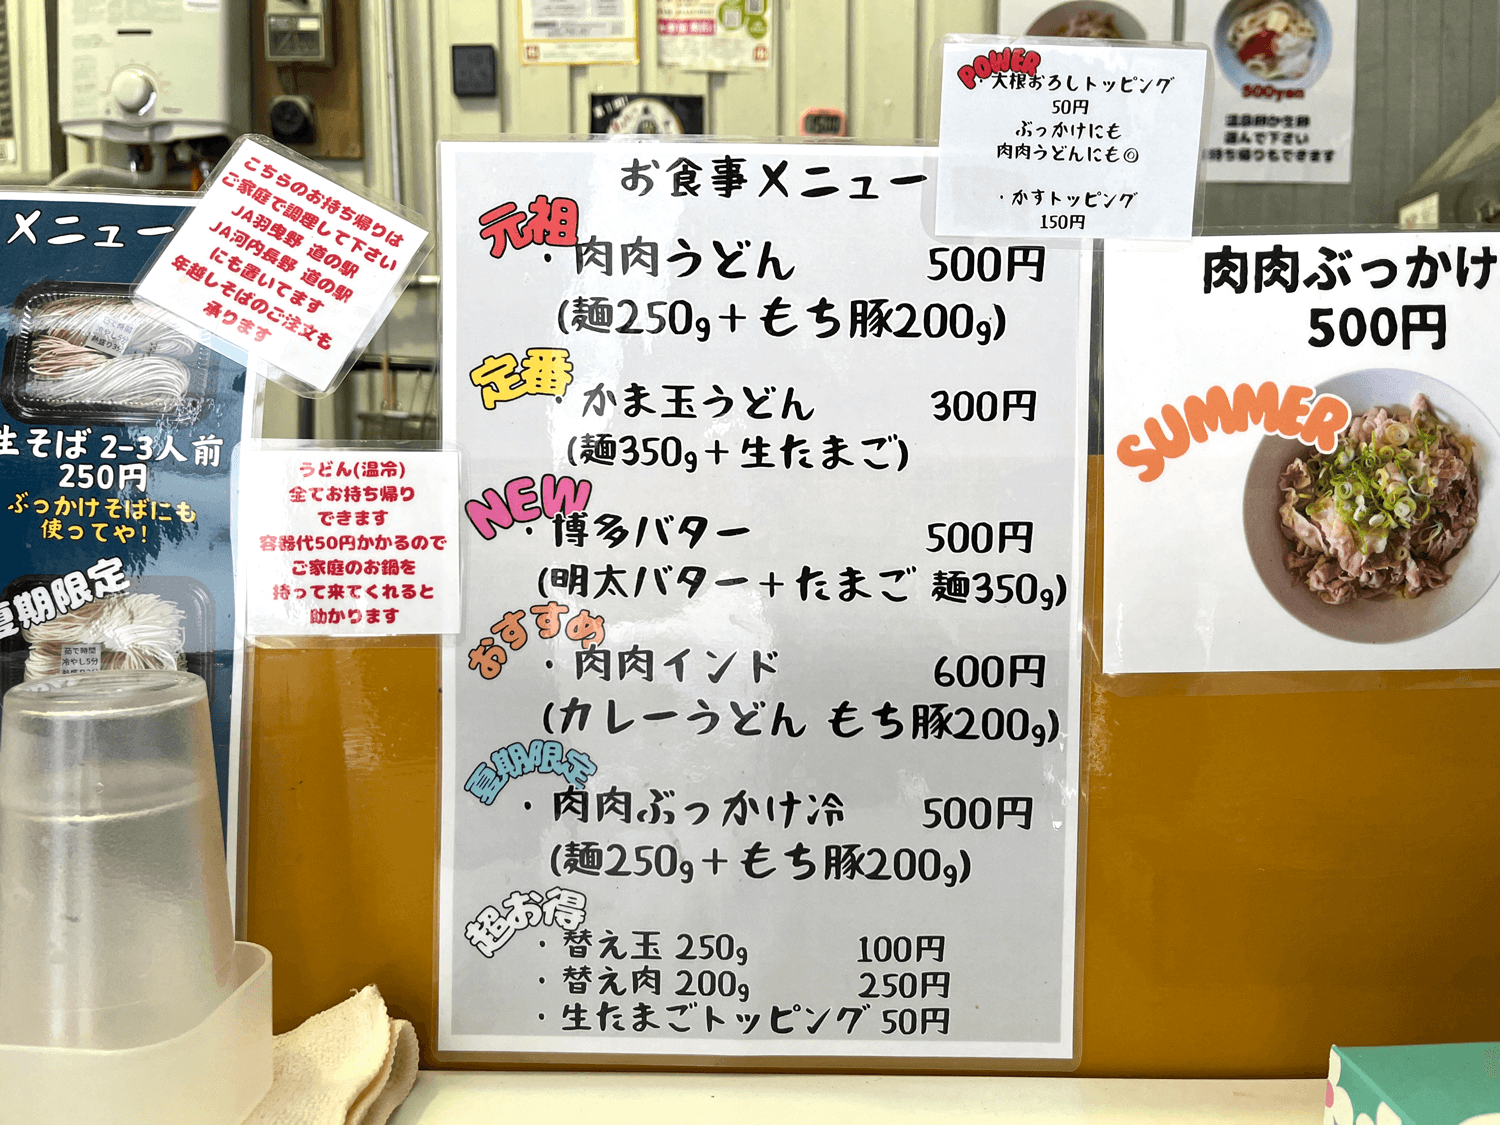 メニュー
生そば 2-3人前
250円
ぶっかけそばにも
使ってや!
夏期限定
茹で時間
冷やし5分
こちらのお持ち帰りは
ご家庭で調理して下さい
JA羽曳野 道の駅
JA河内長野 道の駅
にも置いてます
年越しそばのご注文も
承ります
うどん(温冷)
全てお持ち帰り
できます
容器代50円かかるので
ご家庭のお鍋を
持って来てくれると
助かります
お食事メニュー
元祖
・肉肉うどん 500円
(麺250g+もち豚200g)
定番
・かま玉うどん 300円
(麺350g+生たまご)
NEW
・博多バター 500円
(明太バター+たまご 麺350g)
おすすめ
・肉肉インド 600円
(カレーうどん もち豚200g)
夏期限定
・肉肉ぶっかけ冷 500円
(麺250g+もち豚200g)
超お得
・替え玉 250g 100円
・替え肉 200g 250円
・生たまごトッピング 50円
POWER
・大根おろしトッピング
50円
ぶっかけにも
肉肉うどんにも◎
・かすトッピング
150円
500yen
温泉卵か生卵
選んで下さい
お持ち帰りもできます
肉肉ぶっかけ
500円
SUMMER